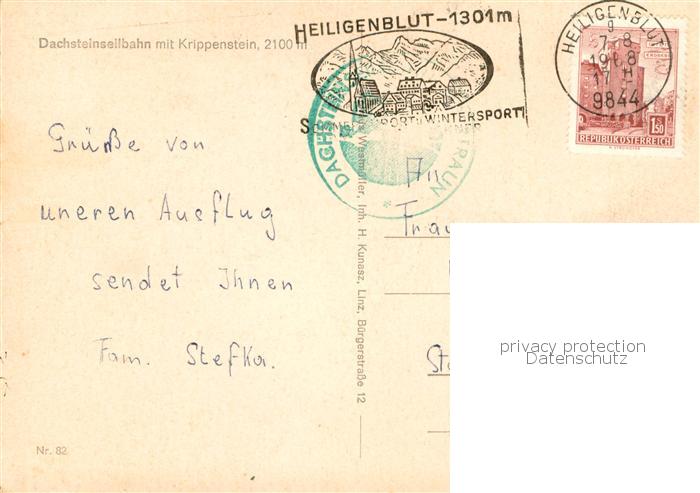 HEILIGENBLUT-1301m
HEILIGENBLUT
9
7-8
1968
17 H
9844
1.50
REPUBLIK ÖSTERREICH
WINTERSPORT
DACHST
TRAUN
Dachsteinseilbahn mit Krippenstein, 2100 m
Grüße von
uneren Ausflug
sendet Ihnen
Fam. Stefka.
Inh. H. Kunasz, Linz, Bürgerstraße 12
An
Frau
Nr. 82
privacy protection
Datenschutz